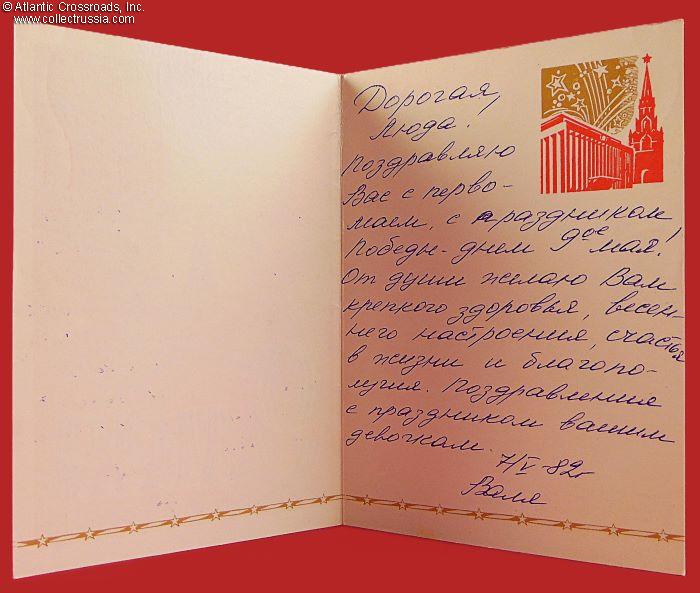 © Atlantic Crossroads, Inc.
www.collectrussia.com
Дорогая,
Люда!
Поздравляю
Вас с перво-
маем, с праздником
Победы - днем 9ое мая!
От души желаю Вам
крепкого здоровья, весен-
него настроения, счастья
в жизни и благопо-
лучия. Поздравления
с праздником вашим
девочкам.
7/V-82г
Валя